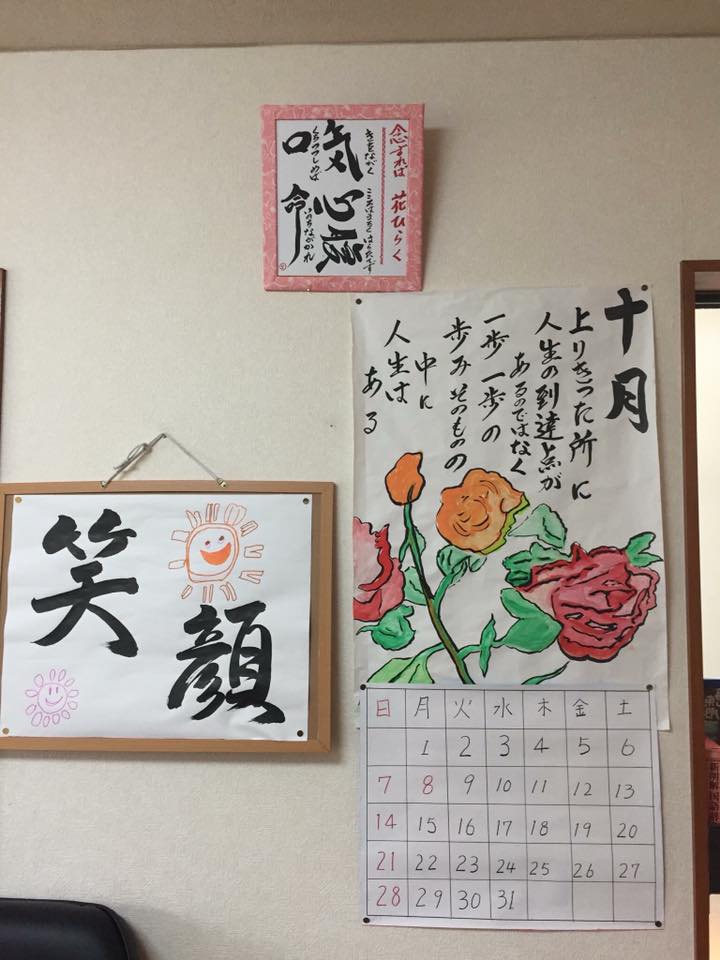 念ずれば 花ひらく
気 心 腹
きはながく こころはまるく はらたてず
口 命
くちつつしめば いのちながかれ
十月
上りきった所に
人生の到達点が
あるのではなく
一歩一歩の
歩みそのものの
中に
人生は
ある
笑顔
日 月 火 水 木 金 土
1 2 3 4 5 6
7 8 9 10 11 12 13
14 15 16 17 18 19 20
21 22 23 24 25 26 27
28 29 30 31